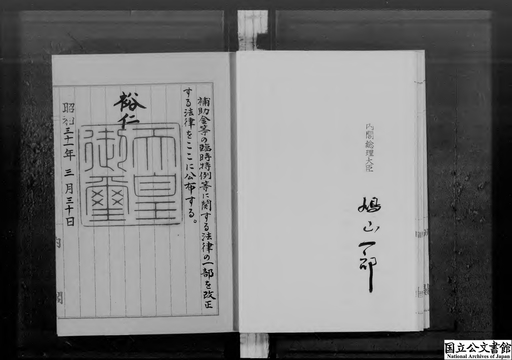 補助金等の臨時特例等に関する法律の一部を改正
する法律をここに公布する。
裕仁
天皇
御璽
昭和三十一年三月三十日
内閣総理大臣
鳩山一郎
国立公文書館
National Archives of Japan